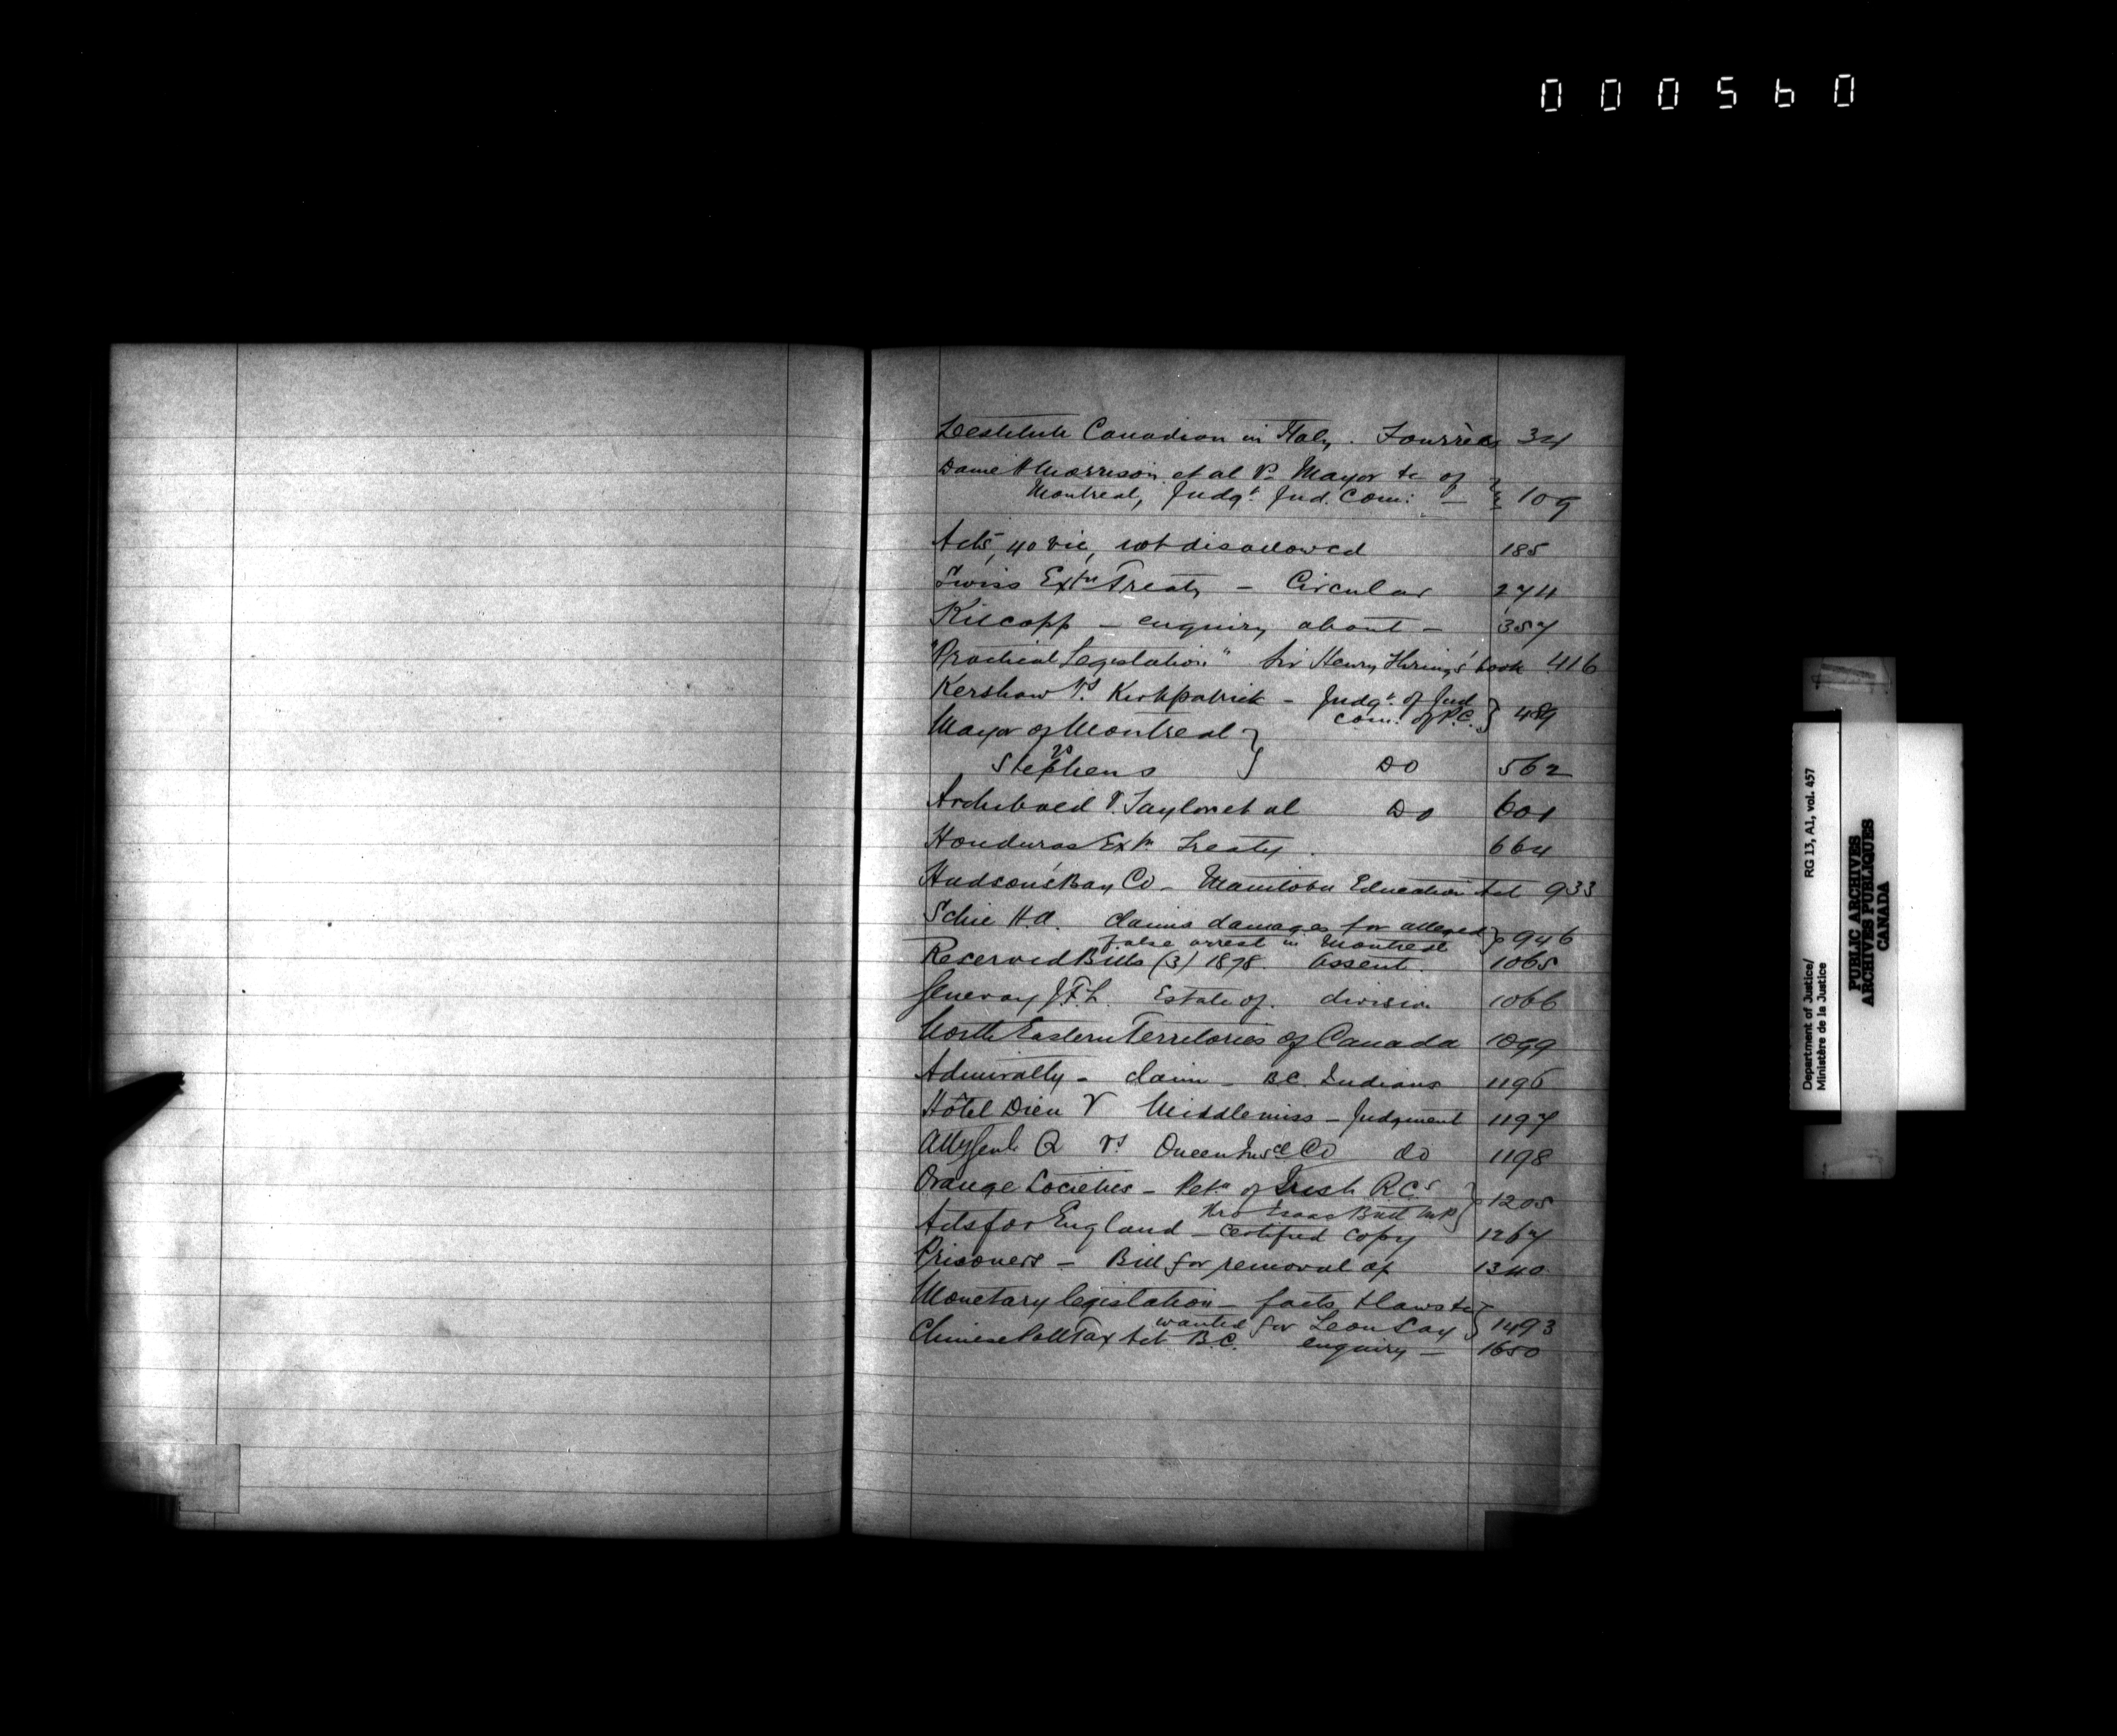 000560
Destitute Canadian in Italy. Fourrés 34
Dame Morrison et al Vs Mayor &c of
Montreal, Judgt. Jud. Com: — } 109
Acts, 40 Vic, not disallowed 185
Swiss Extn Treaty – Circular 274
Kilcopp – enquiry about – 357
"Practical Legislation" Sir Henry Thring's book 416
Kershaw Vs. Kirkpatrick – Judgt. of Jud
Com. of P.C. } 489
Mayor of Montreal }
vs
Stephens Do 562
Archibald V. Taylor et al Do 601
Honduras Extn Treaty. 664
Hudson's Bay Co – Manitoba Education Act 933
Schie H.A. claims damages for alleged
false arrest in Montreal } 946
Reserved Bills (3) 1878. Assent. 1065
J.F.L. Estate of. division 1066
North Eastern Territories of Canada 1099
Admiralty – claim – B.C. Indians 1196
Hôtel Dieu V Middlemiss – Judgment 1197
Atty Genl. Q vs Queen Insce Co do 1198
Orange Societies – Petn of Irish R.C.s
thro Isaac Butt M.P. } 1205
Acts for England – Certified copy 1267
Prisoners – Bill for removal of 1340
Monetary legislation – facts & laws &c
wanted for Leon Say } 1493
Chinese Poll Tax Act B.C. enquiry – 1650
Department of Justice/ RG 13, A1, vol. 457
Ministère de la Justice
PUBLIC ARCHIVES
ARCHIVES PUBLIQUES
CANADA